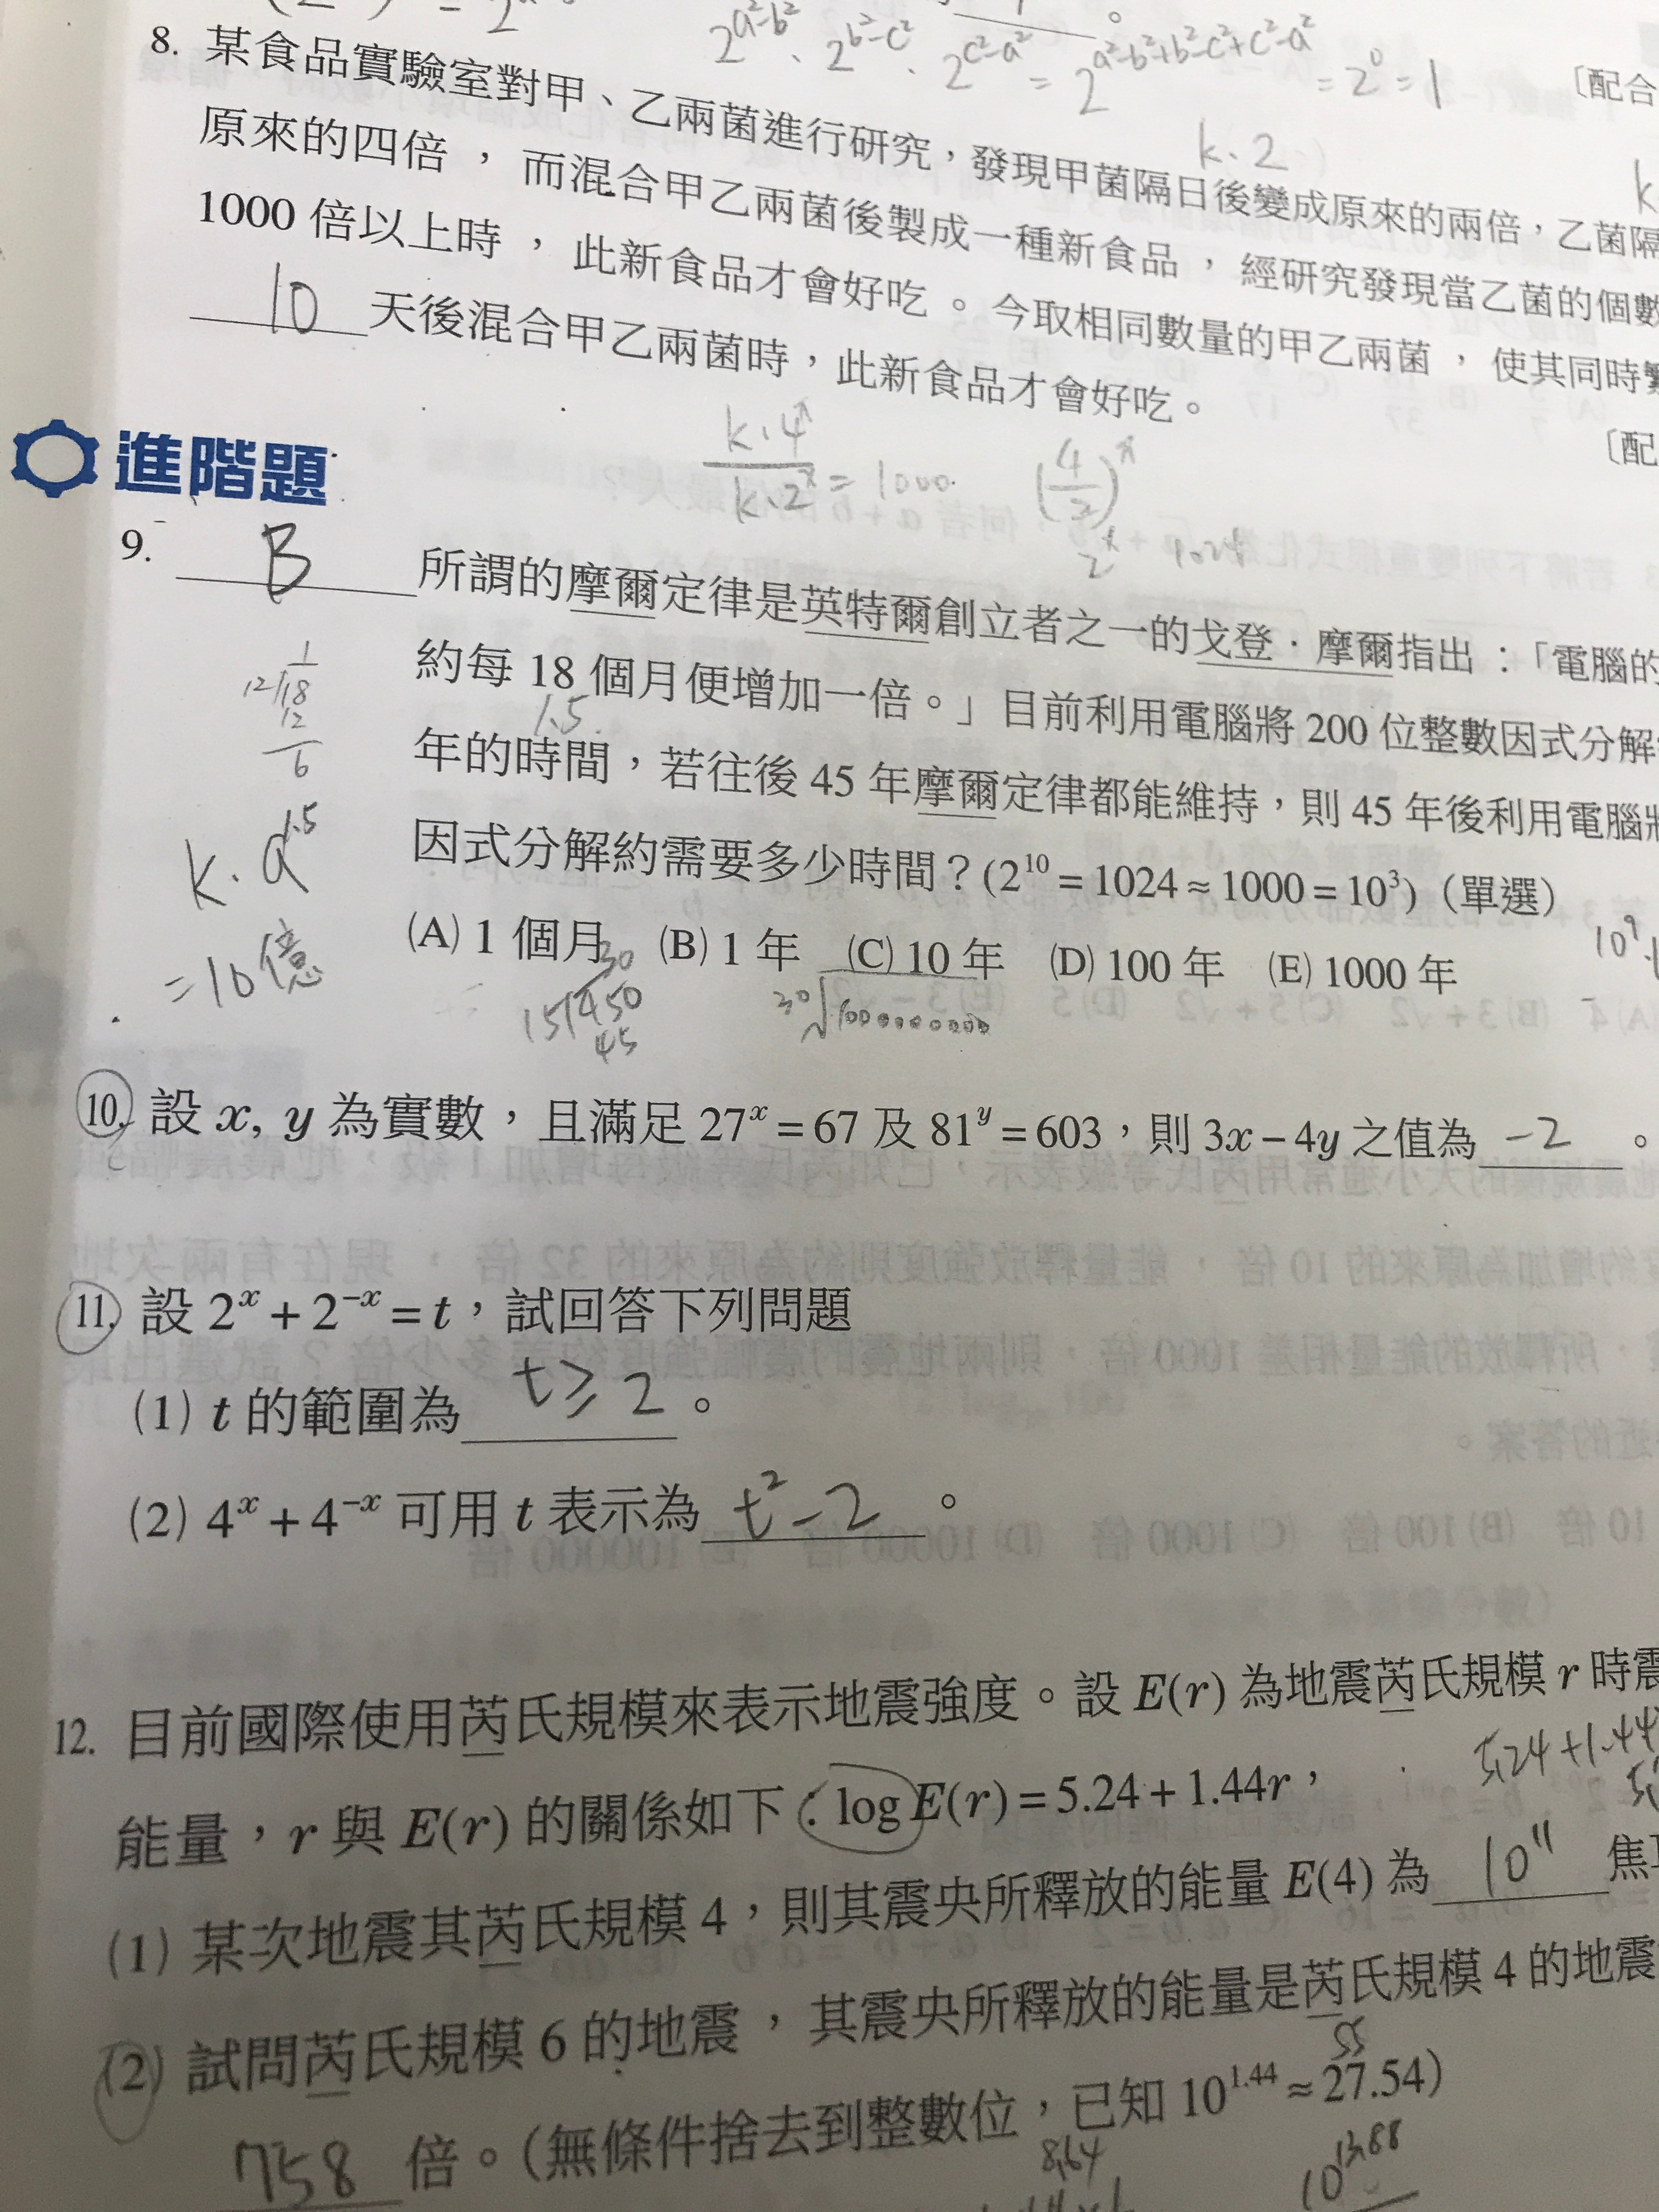 2^{a²-b²} · 2^{b²-c²} · 2^{c²-a²} = 2^{a²-b²+b²-c²+c²-a²} = 2⁰ = 1
〔配合
8. 某食品實驗室對甲、乙兩菌進行研究，發現甲菌隔日後變成原來的兩倍，乙菌隔
k·2
原來的四倍，而混合甲乙兩菌後製成一種新食品，經研究發現當乙菌的個數
1000 倍以上時，此新食品才會好吃。今取相同數量的甲乙兩菌，使其同時
10 天後混合甲乙兩菌時，此新食品才會好吃。
〔配
k·4ˣ / k·2ˣ = 1000 (4/2)ˣ
2ˣ 1024
進階題
9. B 所謂的摩爾定律是英特爾創立者之一的戈登·摩爾指出：「電腦的
約每 18 個月便增加一倍。」目前利用電腦將 200 位整數因式分解
1.5
年的時間，若往後 45 年摩爾定律都能維持，則 45 年後利用電腦
因式分解約需要多少時間？(2¹⁰ = 1024 ≈ 1000 = 10³)（單選）
(A) 1 個月 (B) 1 年 (C) 10 年 (D) 100 年 (E) 1000 年
1
12 18
12
6
k·a^{1.5}
=10億
30
15 450
45
10⁹
10. 設 x, y 為實數，且滿足 27ˣ = 67 及 81ʸ = 603，則 3x − 4y 之值為 -2 。
11. 設 2ˣ + 2⁻ˣ = t，試回答下列問題
(1) t 的範圍為 t ≥ 2 。
(2) 4ˣ + 4⁻ˣ 可用 t 表示為 t² - 2 。
12. 目前國際使用芮氏規模來表示地震強度。設 E(r) 為地震芮氏規模 r 時震
5.24 + 1.44
能量，r 與 E(r) 的關係如下：log E(r) = 5.24 + 1.44r，
(1) 某次地震其芮氏規模 4，則其震央所釋放的能量 E(4) 為 10¹¹ 焦
(2) 試問芮氏規模 6 的地震，其震央所釋放的能量是芮氏規模 4 的地震
55
758 倍。(無條件捨去到整數位，已知 10^{1.44} ≈ 27.54)
8.64
10^{13.88}